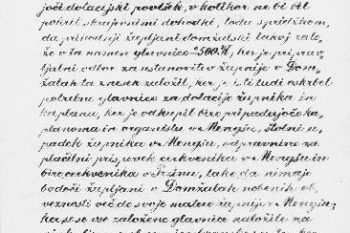 joči dotacijski povišek, v kolikor ne bi bil
pokrit s trajovnimi dohodki, toda s pridržkom,
da prihodnji župljani domžalski takoj zalo-
že v ta namen glavnico 2500 K, ker je pripravo
ljalni odbor za ustanovitev župnije v Dom-
žalah ta znesek založil, ker je isti tudi oskrbel
potrebno glavnico za dotacijo župnika in
kaplana, ker je odkupil biro pripadajočo ka-
planoma in organistu v Mengšu, štolni u-
padek župnika v Mengšu, odpravnino za
plačilni prispevek cerkvenika v Mengšu in
biro cerkvenika v Trzinu, tako da nimajo
bodoči župljani v Domžalah nobenih ob
veznosti več do svoje matere župnije v Mengšu,
ker se so vse založene glavnice naložile za